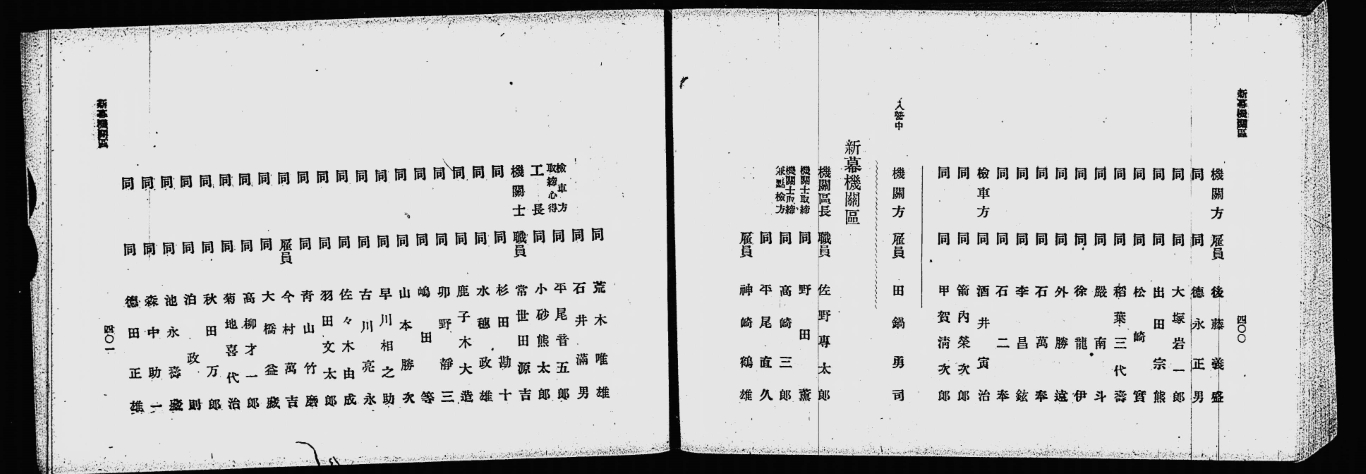 新幕機關區
四〇〇
機關方 雇員 後藤義盛
同 同 德永正男
同 同 大塚岩一郎
同 同 出田宗熊
同 同 松崎實
同 同 稻葉三代壽
同 同 嚴南斗
同 同 徐龍伊
同 同 外勝遠
同 同 石萬奉
同 同 李昌鉉
同 同 石二奉
檢車方 同 酒井寅治
同 同 箭內榮次郎
同 同 甲賀淸次郎
入營中 機關方 雇員 田鍋勇司
新幕機關區
機關區長 職員 佐野專太郎
機關士取締 同 野田薰
機關士取締兼點檢方 同 高崎三郎
同 平尾直久
雇員 神崎鶴雄
同 荒木唯雄
同 石井滿男
檢車方取締心得 同 平尾音五郎
工長 同 小砂熊太郎
機關士 職員 常世田源吉
同 同 杉田勘十
同 同 水穗政雄
同 同 鹿子木大造
同 同 卯野靜三
同 同 嶋田等
同 同 山本勝次
同 同 早川相之助
同 同 古川亮永
同 同 佐々木由成
同 同 羽田文太郎
同 同 靑山竹磨
同 雇員 今村萬吉
同 同 大橋益藏
同 同 高柳才一郎
同 同 菊地喜代治
同 同 秋田万郎
同 同 泊政則
同 同 池永壽盛
同 同 森中助一
同 同 德田正雄
新幕機關區
四〇一